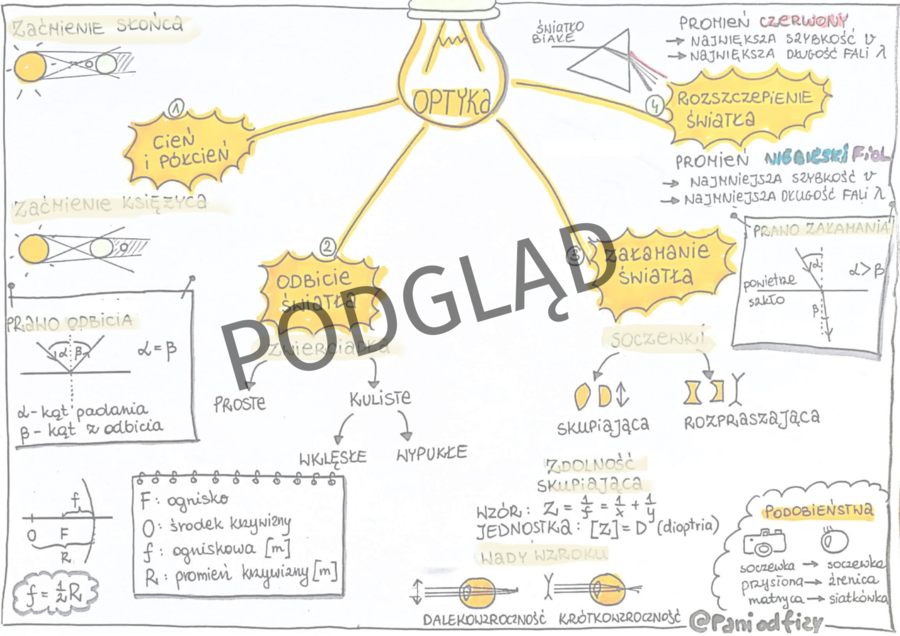 ZAĆMIENIE SŁOŃCA
OPTYKA
ŚWIATŁO
BIAŁE
PROMIEŃ CZERWONY
→ NAJWIĘKSZA SZYBKOŚĆ υ
→ NAJWIĘKSZA DŁUGOŚĆ FALI λ
1
CIEŃ
i PÓŁCIEŃ
4
ROZSZCZEPIENIE
ŚWIATŁA
PROMIEŃ NIEBIESKI FIOL
→ NAJMNIEJSZA SZYBKOŚĆ υ
→ NAJMNIEJSZA DŁUGOŚĆ FALI λ
ZAĆMIENIE KSIĘŻYCA
2
ODBICIE
ŚWIATŁA
3
ZAŁAMANIE
ŚWIATŁA
PRAWO ZAŁAMANIA
α
α > β
powietrze
szkło
β
PODGLĄD
PRAWO ODBICIA
α β
α = β
α - kąt padania
β - kąt odbicia
ZWIERCIADŁA
PROSTE
KULISTE
WKLĘSŁE
WYPUKŁE
SOCZEWKI
SKUPIAJĄCA
ROZPRASZAJĄCA
f
O F
R
f = ½ R
F: ognisko
O: środek krzywizny
f: ogniskowa [m]
R: promień krzywizny [m]
ZDOLNOŚĆ
SKUPIAJĄCA
WZÓR: Z = 1/f = 1/x + 1/y
JEDNOSTKA: [Z] = D (dioptria)
WADY WZROKU
DALEKOWZROCZNOŚĆ
KRÓTKOWZROCZNOŚĆ
PODOBIEŃSTWA
soczewka → soczewka
przysłona → źrenica
matryca → siatkówka
@Paniodfizy